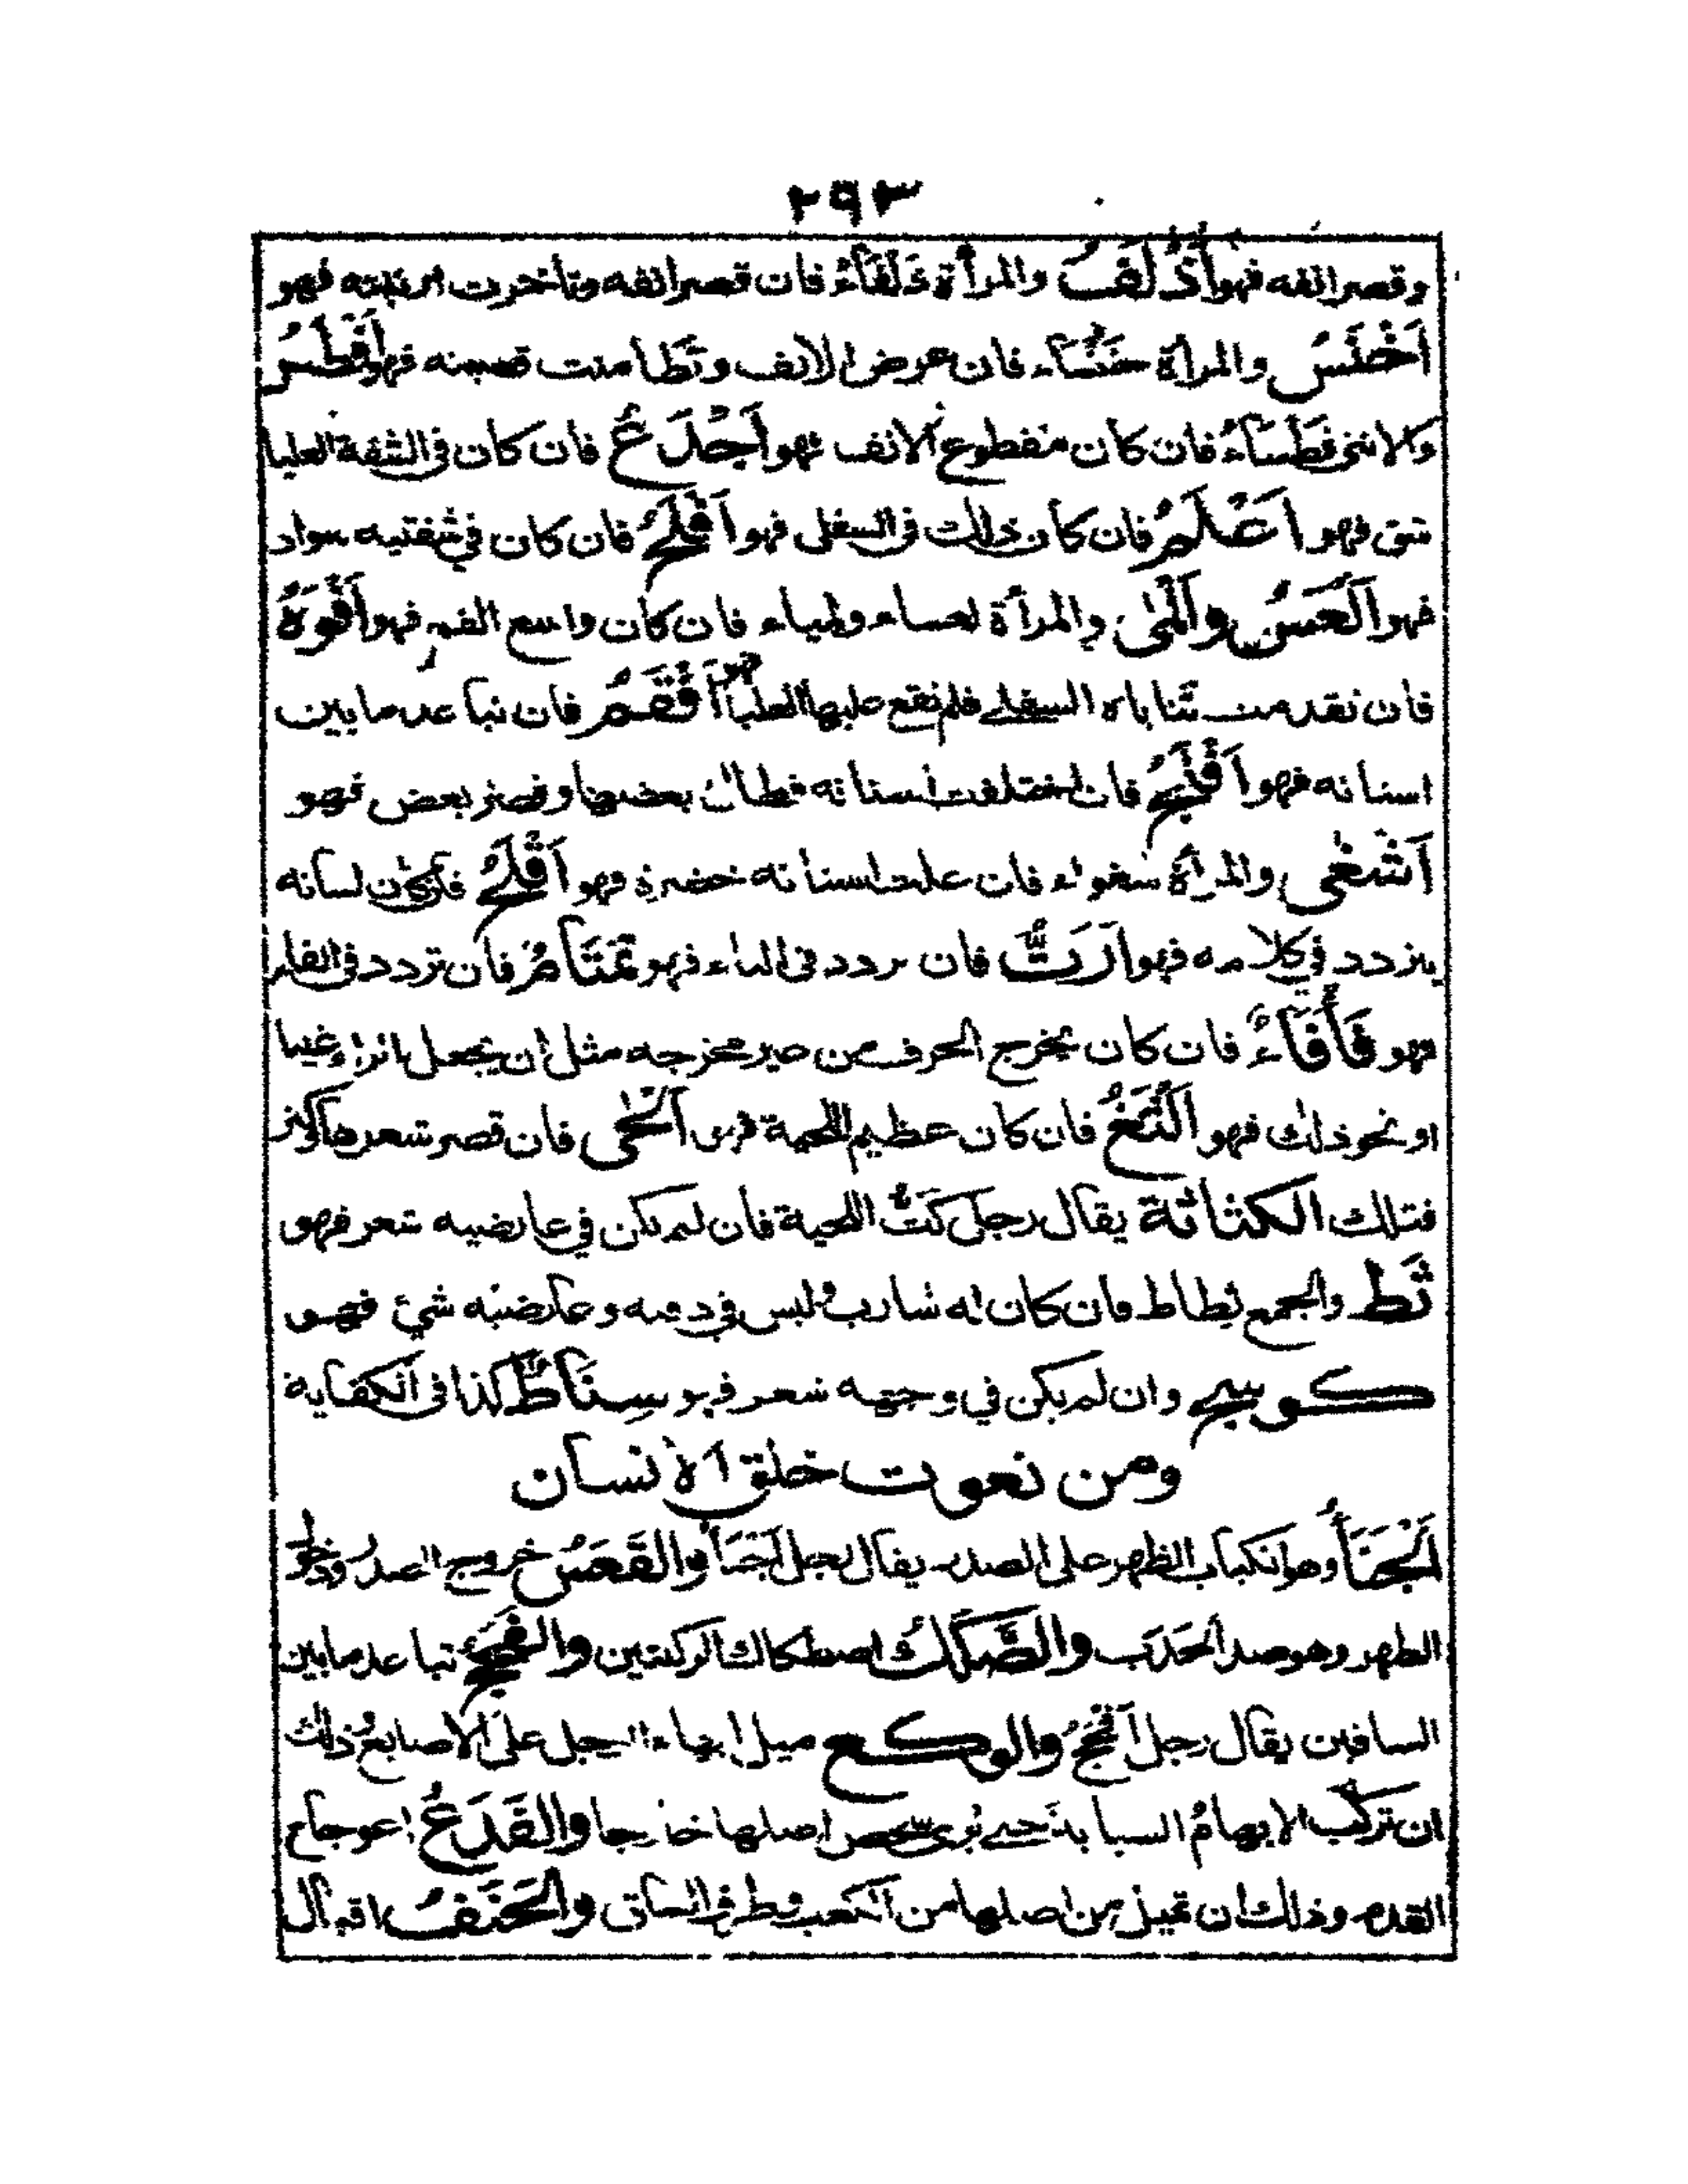 ٢٩٣
وقصر انفه فهو أَذْلَفُ والمرأة ذَلْفَاءُ فان قصر انفه وتأخرت ارنبته فهو
اَخْنَسُ والمرأة خَنْسَاء فان عرض الانف وتَطَامنت قصبته فهو اَفْطَسُ
والانثى فَطْسَاءُ فان كان مقطوع الانف فهو اَجْدَعُ فان كان فى الشفة العليا
شق فهو اَعْلَمُ فان كان ذلك فى السفلى فهو اَفْلَحُ فان كان في شفتيه سواد
فهو اَلْعَسُ واَلْمٰى والمرأة لعساء ولمياء فان كان واسع الفم فهو اَفْوَهُ
فان تقدمت ثناياه السفلى فلم تقع عليها العليا فهو اَفْقَمُ فان تباعد ما بين
اسنانه فهو اَفْلَجُ فان اختلفت اسنانه فطال بعضها وقصر بعض فهو
اَشْغٰى والمرأة شغواء فان علت اسنانه خضرة فهو اَقْلَحُ فان كان لسانه
يتردد في كلامه فهو اَرَتُّ فان تردد فى التاء فهو تَمْتَامُ فان تردد فى الفاء
فهو فَأْفَاءُ فان كان يخرج الحرف من غير مخرجه مثل ان يجعل الراء غينا
او نحو ذلك فهو اَلْثَغُ فان كان عظيم اللحية فهو اَلْحٰى فان قصر شعرها وكثر
فتلك الكثاثة يقال رجل كَثُّ اللحية فان لم يكن في عارضيه شعر فهو
ثَطّ والجمع ثطاط فان كان له شارب وليس في ذقنه وعارضيه شيء فهو
كوسج وان لم يكن في وجهه شعر فهو سِنَاطٌ كذا فى الكفاية
ومن نعوت خلق الانسان
اَلْجَنَأُ وهو انكباب الظهر على الصدر يقال رجل اَجْنَأُ والقَعَسُ خروج الصدر ودخول
الظهر وهو ضد الحَدَب والصَّكَكُ اصطكاك الركبتين والفَحَجُ تباعد ما بين
الساقين يقال رجل اَفْحَجُ والوكع ميل ابهام الرجل على الاصابع وذلك
ان تركب الابهامُ السبابة حتى يُرى شخص اصلها خارجا والفَدَعُ اعوجاج
القدم وذلك ان تميل من اصلها من الكعب وطرف الساق والحَنَفُ اقبال